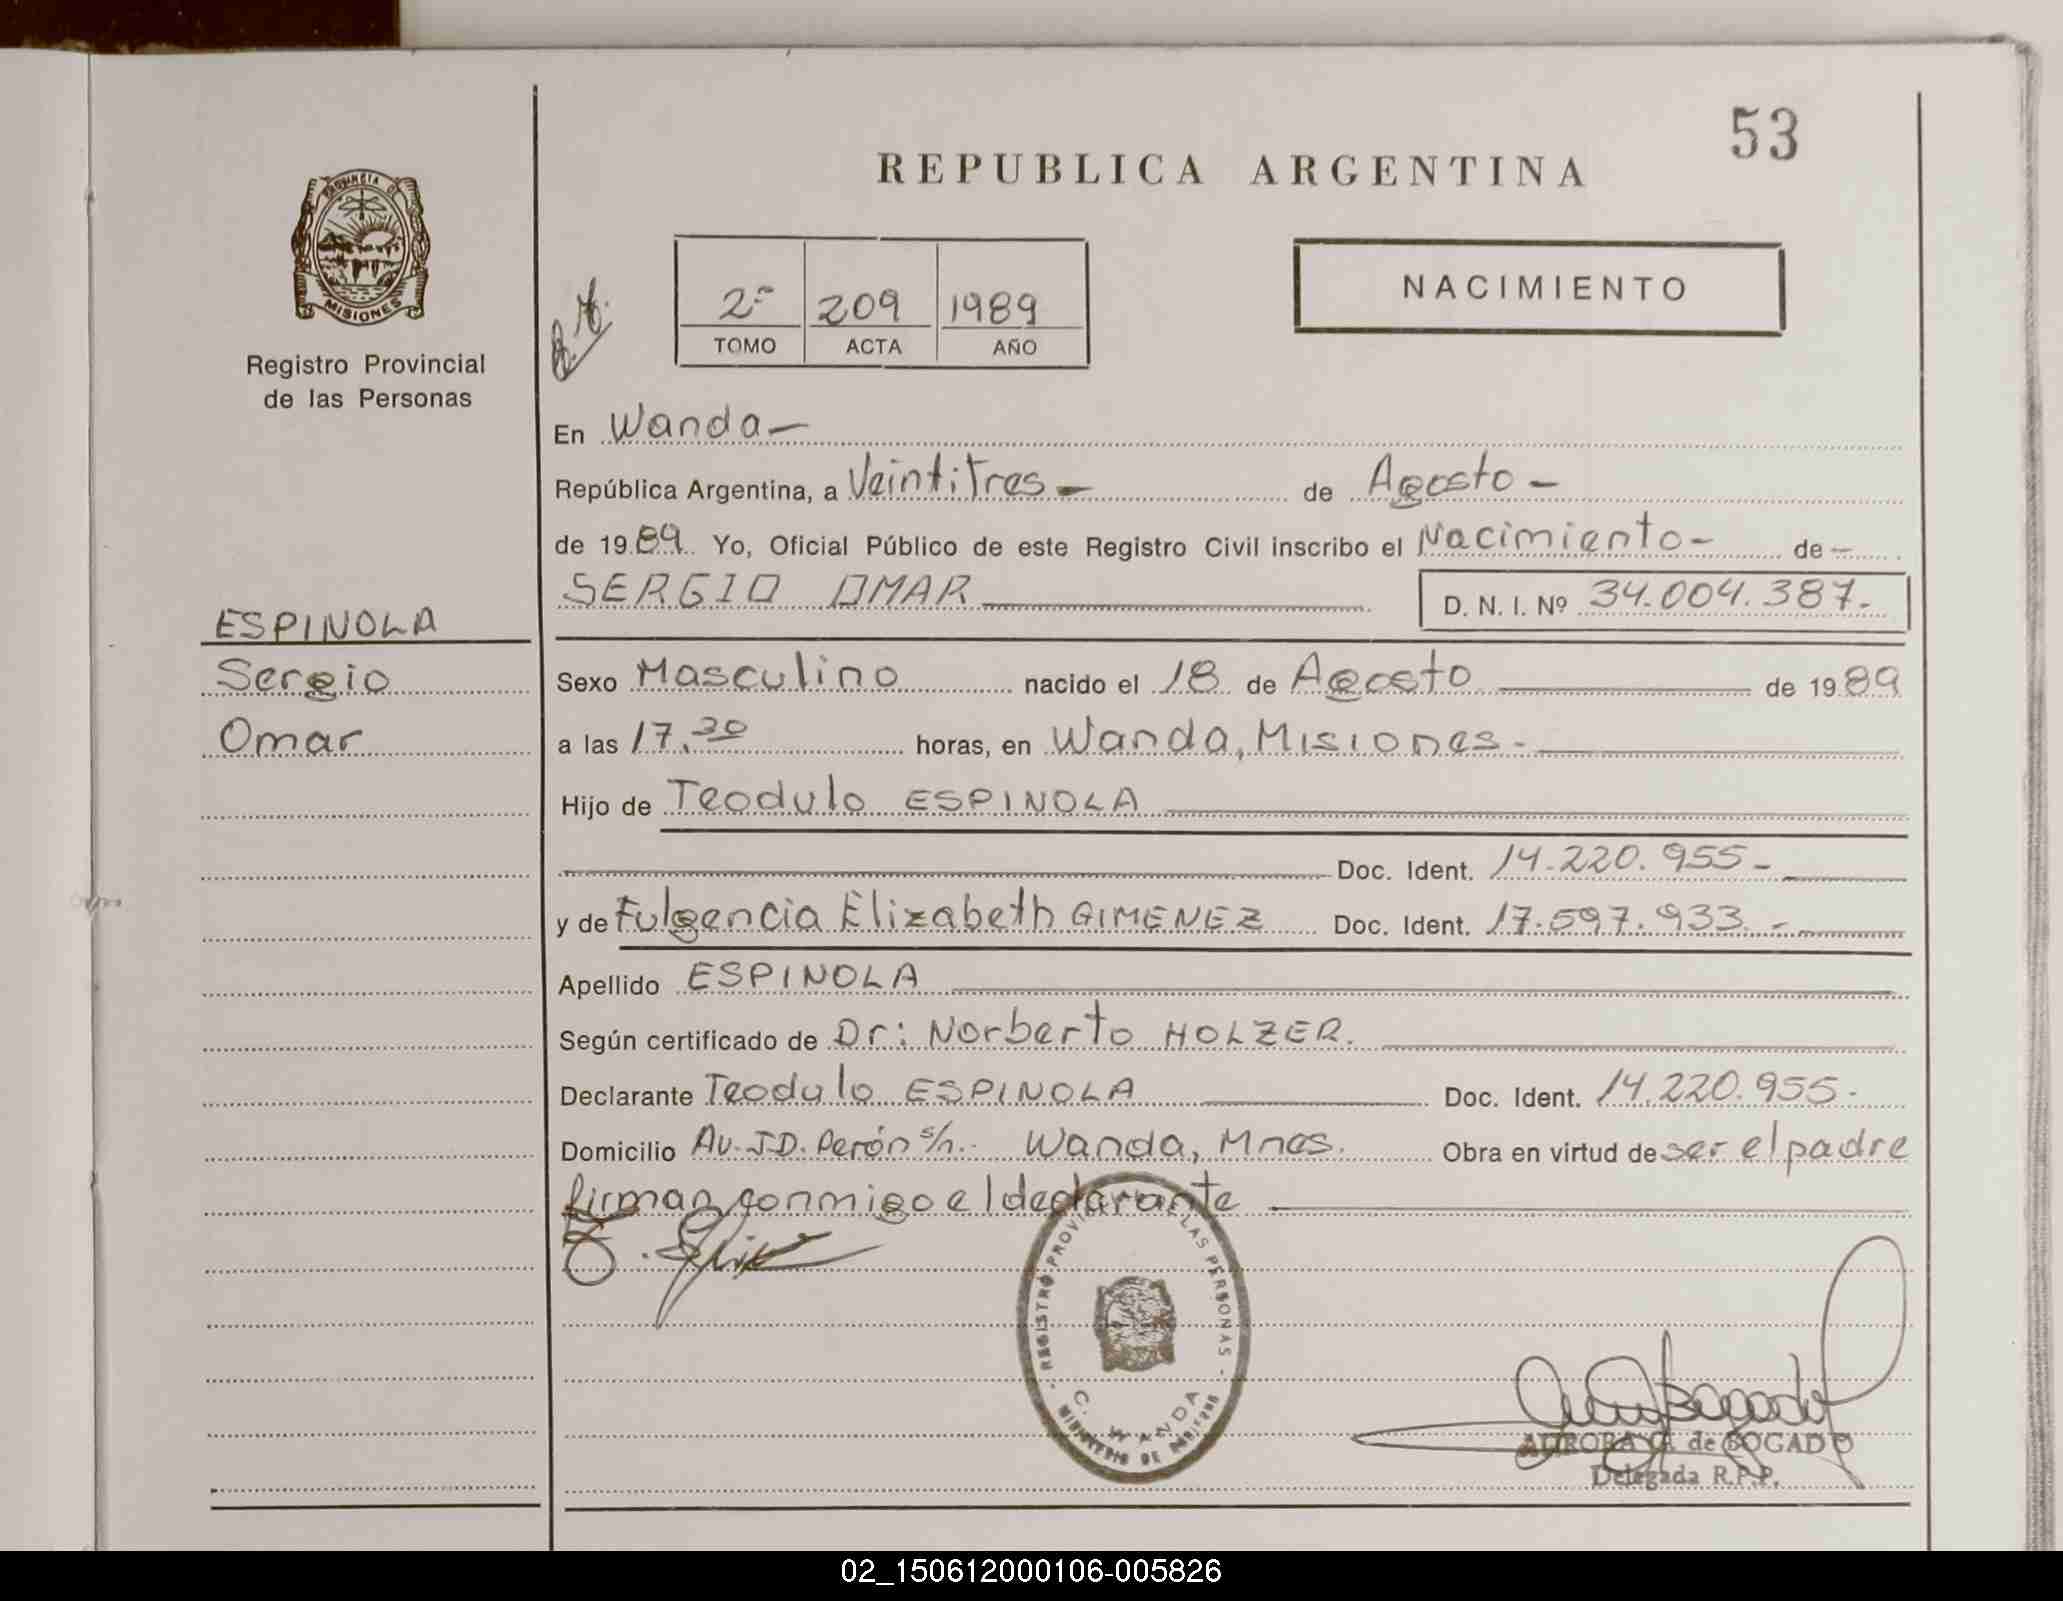 53
REPUBLICA ARGENTINA
PROVINCIA D
MISIONES
Registro Provincial
de las Personas
2º 209 1989
TOMO ACTA AÑO
NACIMIENTO
En Wanda-
República Argentina, a Veintitres - de Agosto -
de 1989 Yo, Oficial Público de este Registro Civil inscribo el Nacimiento- de -
SERGIO OMAR D. N. I. Nº 34.004.387.-
ESPINOLA
Sergio
Omar
Sexo Masculino nacido el 18 de Agosto de 1989
a las 17.30 horas, en Wanda, Misiones.-
Hijo de Teodulo ESPINOLA
Doc. Ident. 14.220.955-
y de Fulgencia Elizabeth GIMENEZ Doc. Ident. 17.597.933.-
Apellido ESPINOLA
Según certificado de Dr: Norberto HOLZER.
Declarante Teodulo ESPINOLA Doc. Ident. 14.220.955.-
Domicilio Av. J.D. Perón s/n.- Wanda, Mnes. Obra en virtud de ser el padre
firman conmigo el declarante
REGISTRO PROVINCIAL DE LAS PERSONAS
C. WANDA
MINISTERIO DE
AURORA de BOGADO
Delegada R.P.P.
02_150612000106-005826